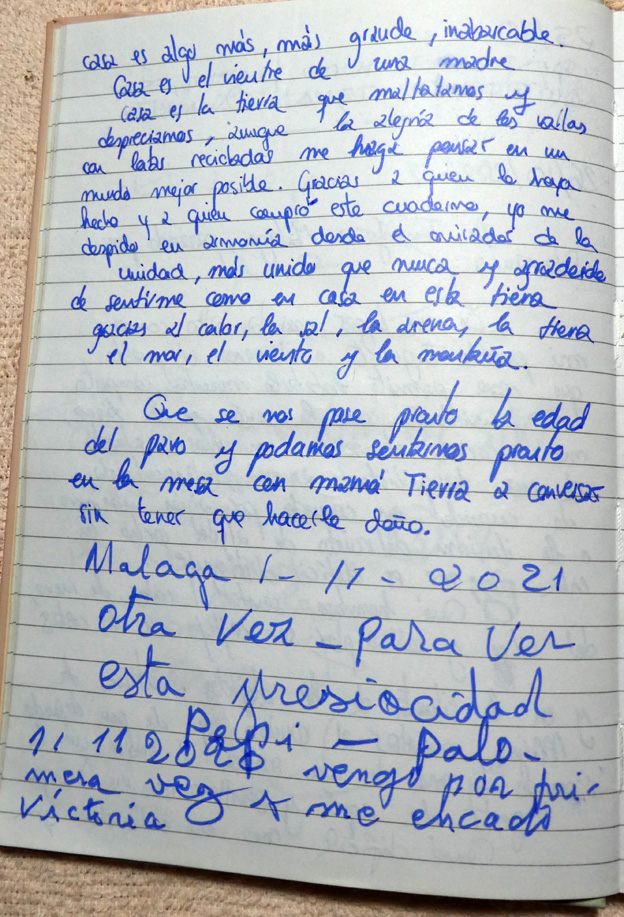 casa es algo más, más grande, inabarcable.
Casa es el vientre de una madre
casa es la tierra que maltratamos y
despreciamos, aunque la alegría de las vallas
con latas recicladas me haga pensar en un
mundo mejor posible. Gracias a quien lo haya
hecho y a quien compró este cuaderno, yo me
despido en armonía desde el mirador de la
unidad, más unido que nunca y agradecido
de sentirme como en casa en esta tierra
gracias al calor, la sal, la arena, la tierra
el mar, el viento y la montaña.
Que se nos pase pronto la edad
del pavo y podamos sentarnos pronto
en la mesa con mamá Tierra a conversar
sin tener que hacerle daño.
Malaga 1-11-2021
otra vez - para ver
esta presiocidad
Pepi - Palo-
1, 11 vengo por pri-
mera vez y me encadó
Victoria